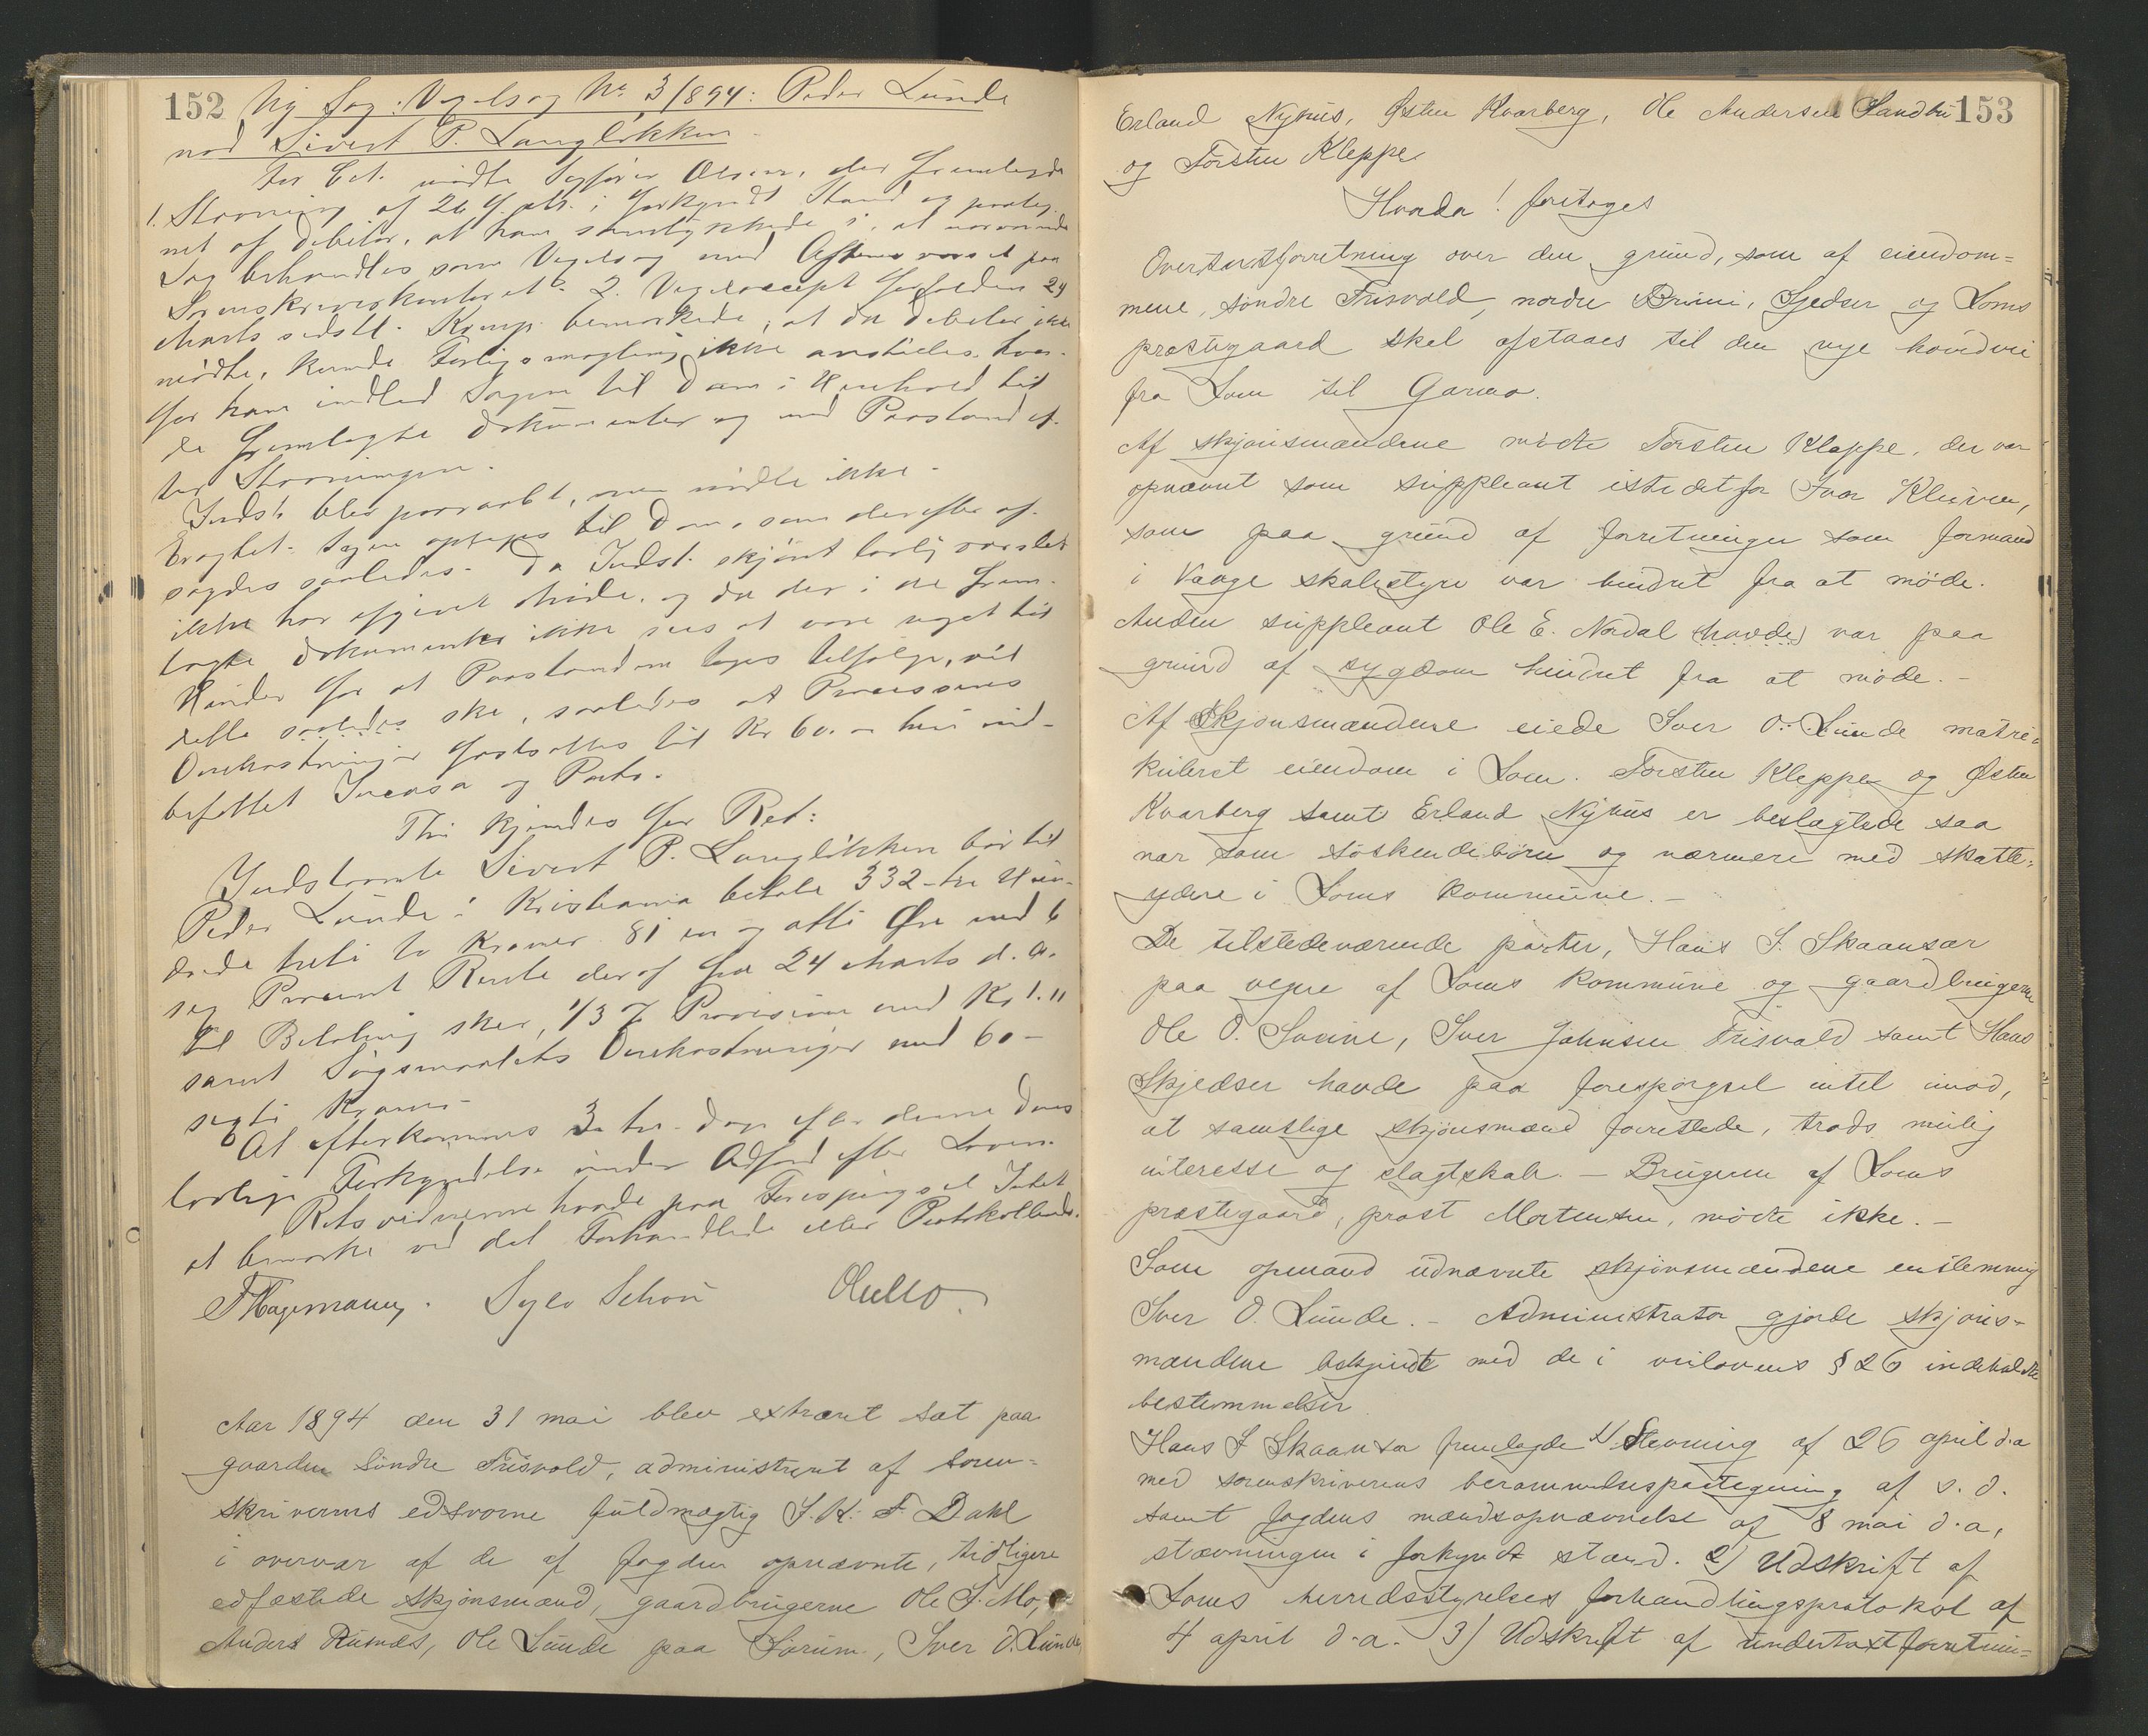 152 Ny Sag: Vexelsag No 3/1894: Peder Lunde
mod Sivert P. Langløkken
For Cit. mødte Sagfører Olsen, der fremlagde
1. Stævning af 26 f. M. i forkyndt Stand og paateg-
net af Debitor, at han samtykkede i, at nærværende
Sag behandles som Vexelsag med Aftens varsel paa
Sorenskriverkontoret. 2. Vexelaccept forfalden 24
Marts sidstl. Komp. bemærkede, at da Debitor ikke
mødte, kunde Forligsmægling ikke anstilles, hvor-
for han indlod Sagen til Dom i Henhold til
de fremlagte Dokumenter og med Paastand ef-
ter Stævningen.
Indst. blev paaraabt, men mødte ikke.
Eragtet: Sagen optages til Dom, som derefter af-
sagdes saaledes: Da Indst. skjønt lovlig varslet
ikke har afgivet Møde, og da der i de frem-
lagte Dokumenter ikke sees at være noget til
Hinder for at Paastanden tages tilfølge, vil
dette saaledes ske, saaledes at Processens
Omkostninger fastsættes til Kr 60.- heri ind-
befattet Incasso og Porto.
Thi kjendes for Ret:
Indstevnte Sivert P. Langløkken bør til
Peder Lunde i Kristiania betale 332 - tre Hun-
drede treti to Kroner 81 en og otti Øre med 6
sex Procent Rente deraf fra 24 Marts d. A.
til Betaling sker, 1/3 % Provision med Kr 1.11
samt Søgsmaalets Omkostninger med 60 -
sexti Kroner -
At efterkommes 3 - tre - Dage efter denne Doms
lovlige Forkyndelse under Adfærd efter Loven.
Retsvidnerne havde paa Forespørgsel Intet
at bemærke ved det Forhandlede eller Protokollerede.
F Hagemann. Syver Schou
Aar 1894 den 31 mai blev extraret sat paa
gaarden Søndre Frisvold, administreret af soren-
skriverens edsvorne fuldmægtig J. K. F. Dahl
i overvær af de af fogden opnævnte, tidligere
edfæstede skjønsmænd, gaardbrugerne Ole J. Mo,
Anders Runds, Ole Lunde paa Sørum, Iver O. Lunde,
153
Erland Nyhus, Østen Kvarberg, Ole Andersen Sandbu
og Torsten Kleppe.
Hvorda! foretoges
Overtaxtforretning over den grund, som af eiendom-
mene, søndre Frisvold, nordre Brimi, Gjedser og Loms
præstegaard skal afstaaes til den nye hovedvei
fra Lom til Garmo.
Af skjønsmændene mødte Torsten Kleppe, der var
opnævnt som suppleant istedetfor Ivar Kleiven,
som paa grund af forretninger som formand
i Vaage skolestyre var hindret fra at møde.
Anden suppleant Ole E. Nordal (havde) var paa
grund af sygdom hindret fra at møde. -
Af Skjønsmændene eiede Iver O. Lunde matri-
kuleret eiendom i Lom. Torsten Kleppe og Østen
Kvarberg samt Erland Nyhus er beslægtede saa
nær som søskendebørn og nærmere med skatte-
ydere i Loms kommune. -
De tilstedeværende parter, Hans J. Skaansar
paa vegne af Loms kommune og gaardbrugerne
Ole O. Sveine, Iver Johnsen Frisvold samt Hans
Skjedser havde paa forespørgsel intet imod,
at samtlige skjønsmænd forrettede, trods mulig
interesse og slægtskab. - Brugeren af Loms
præstegaard, prost Mortensen, mødte ikke. -
Som opmand udnævnte skjønsmændene enstemmig
Iver O. Lunde. - Administrator gjorde skjøns-
mændene bekjendt med de i veilovens § 26 indeholdte
bestemmelser
Hans J Skaansar fremlagde 1/ Stevning af 26 april d.a
med sorenskriverens berammelsespaategning af s. d.
samt fogdens mandsopnævnelse af 8 mai d.a,
stævningen i forkyndt stand. 2) Udskrift af
Loms herredsstyrelses forhandlingsprotokol af
4 april d.a. 3) Udskrift af undertaxtforretnin-